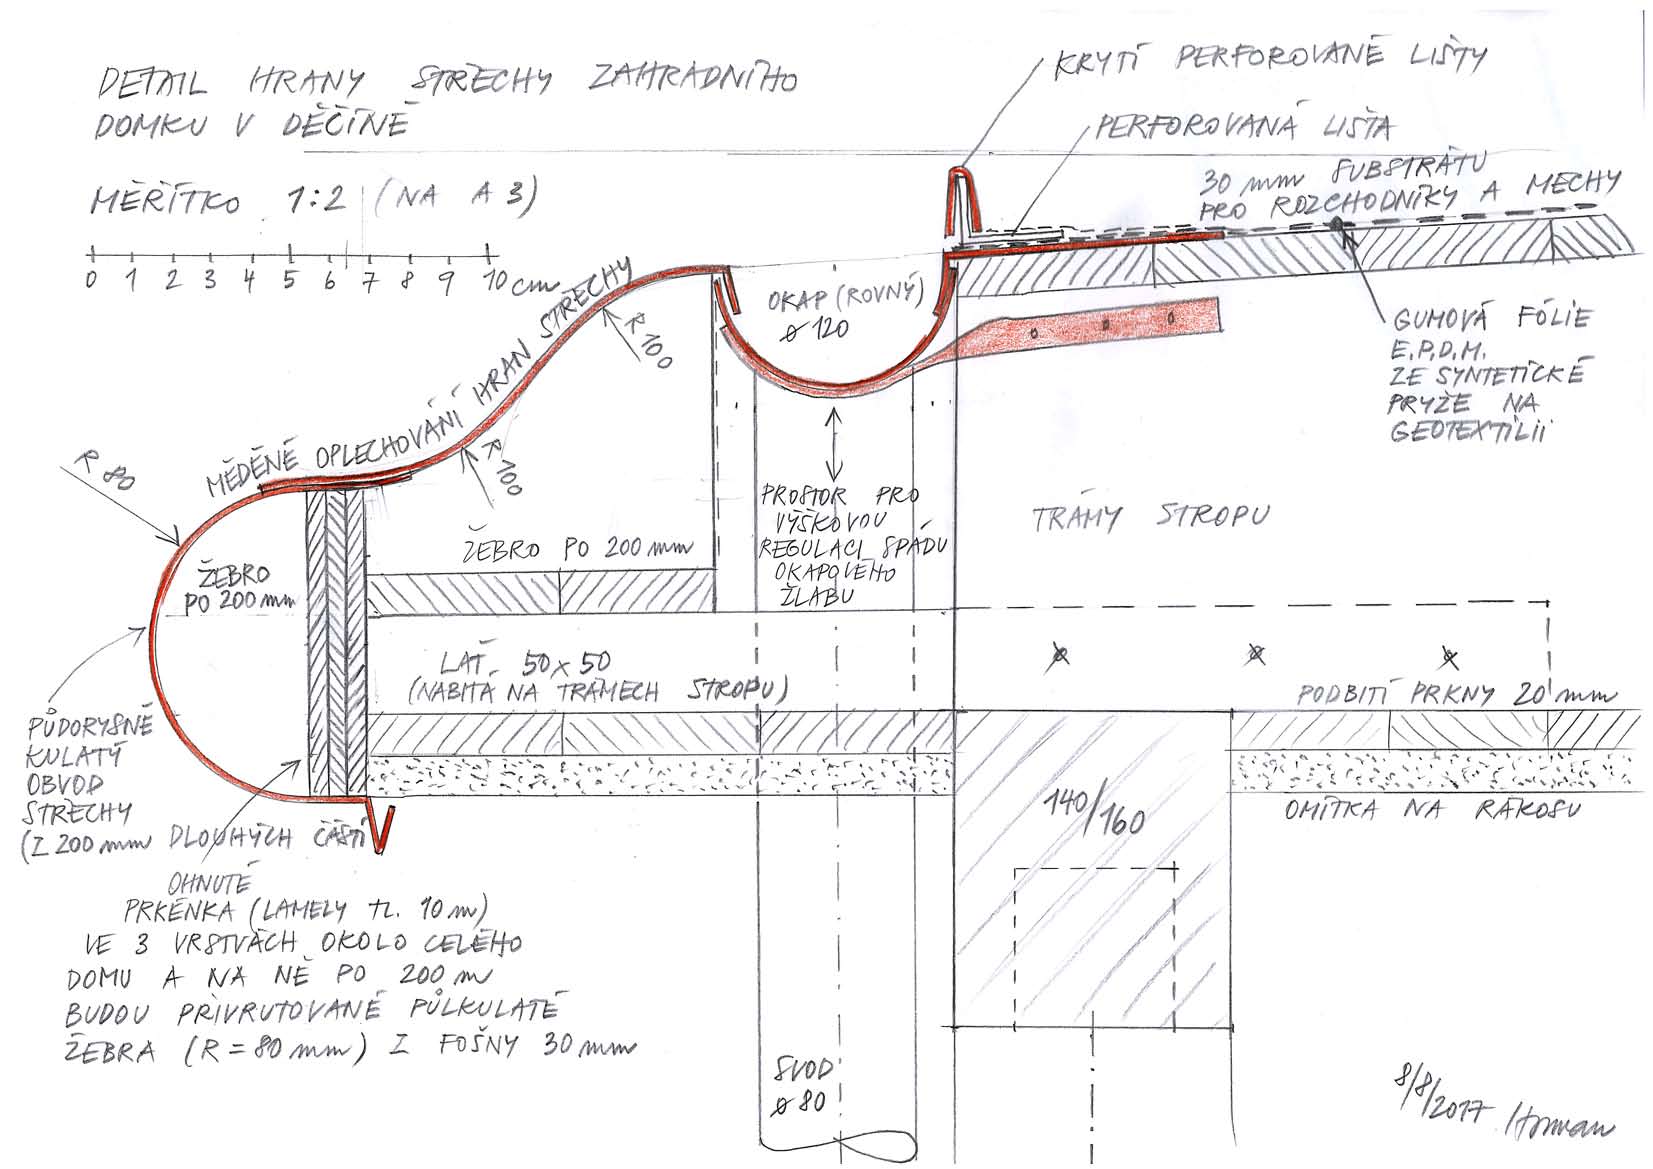 DETAIL HRANY STŘECHY ZAHRADNÍHO
DOMKU V DĚČÍNĚ
MĚŘÍTKO 1:2 (NA A3)
0 1 2 3 4 5 6 7 8 9 10 cm
KRYTÍ PERFOROVANÉ LIŠTY
PERFOROVANÁ LIŠTA
30 mm SUBSTRÁTU
PRO ROZCHODNÍKY A MECHY
OKAP (ROVNÝ)
ø 120
GUMOVÁ FÓLIE
E.P.D.M.
ZE SYNTETICKÉ
PRYŽE NA
GEOTEXTÍLII
MĚDĚNÉ OPLECHOVÁNÍ HRAN STŘECHY
R 100
R 100
R 80
PROSTOR PRO
VÝŠKOVOU
REGULACI SPÁDU
OKAPOVÉHO
ŽLABU
TRÁMY STROPU
ŽEBRO PO 200 mm
ŽEBRO
PO 200 mm
LAŤ 50x50
(NABITÁ NA TRÁMECH STROPU)
PODBITÍ PRKNY 20 mm
PŮDORYSNĚ
KULATÝ
OBVOD
STŘECHY
(Z 200 mm DLOUHÝCH ČÁSTÍ
140/160
OMÍTKA NA RÁKOSU
OHNUTÉ
PRKÉNKA (LAMELY TL. 10 m)
VE 3 VRSTVÁCH OKOLO CELÉHO
DOMU A NA NĚ PO 200 m
BUDOU PŘIVRUTOVANÉ PŮLKULATÉ
ŽEBRA (R = 80 mm) Z FOŠNY 30 mm
SVOD
ø 80
8/8/2017